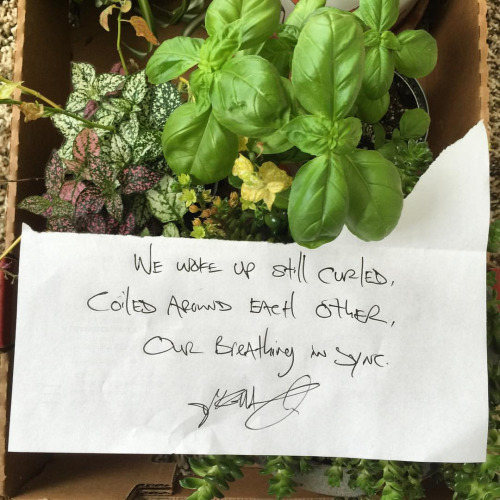 We woke up still curled,
Coiled Around Each Other,
Our Breathing in sync.